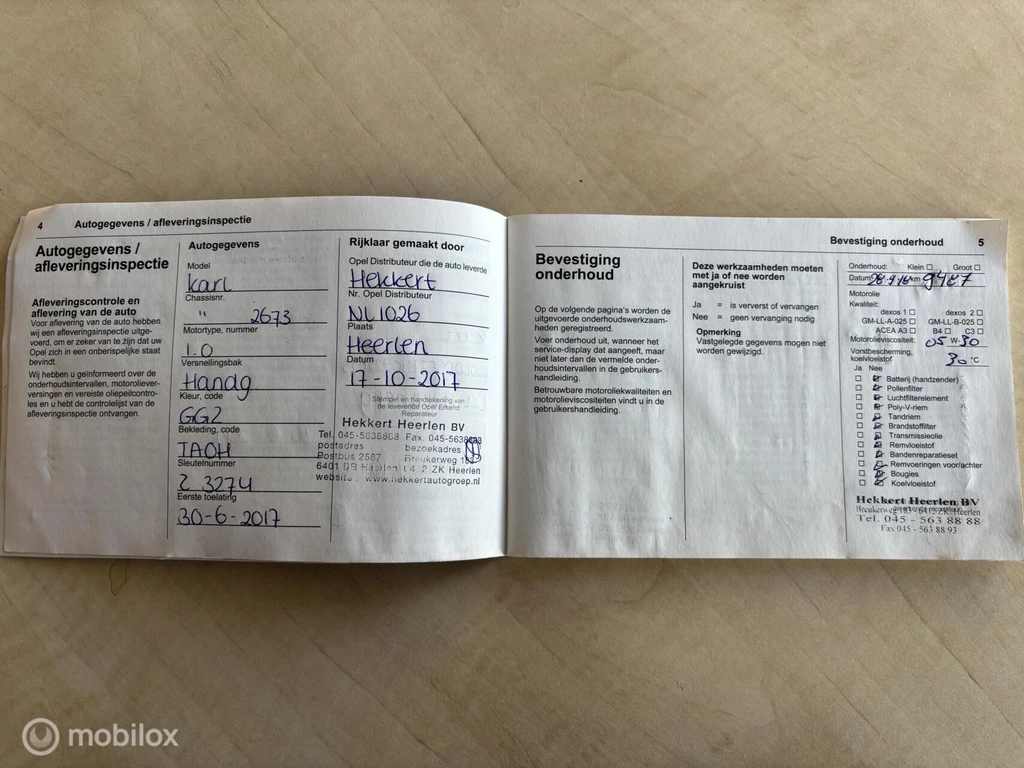 4 Autogegevens / afleveringsinspectie
Autogegevens /
afleveringsinspectie
Afleveringscontrole en
aflevering van de auto
Voor aflevering van de auto hebben
wij een afleveringsinspectie uitge-
voerd, om er zeker van te zijn dat uw
Opel zich in een onberispelijke staat
bevindt.
Wij hebben u geïnformeerd over de
onderhoudsintervallen, motoroliever-
versingen en vereiste oliepeilcontro-
les en u hebt de controlelijst van de
afleveringsinspectie ontvangen.
Autogegevens
Model
Karl
Chassisnr.
" 2673
Motortype, nummer
1.0
Versnellingsbak
Handg
Kleur, code
GG2
Bekleding, code
TAOH
Sleutelnummer
Z 3274
Eerste toelating
30-6-2017
Rijklaar gemaakt door
Opel Distributeur die de auto leverde
Hekkert
Nr. Opel Distributeur
NL1026
Plaats
Heerlen
Datum
17-10-2017
Stempel en handtekening van
de leverende Opel Erkend
Reparateur
Hekkert Heerlen BV
Tel. 045-5638888 Fax. 045-5638893
postadres bezoekadres
Postbus 2587 Breukerweg
Heerlen ZK Heerlen
website : www.hekkertautogroep.nl
Bevestiging onderhoud 5
Bevestiging
onderhoud
Op de volgende pagina's worden de
uitgevoerde onderhoudswerkzaam-
heden geregistreerd.
Voer onderhoud uit, wanneer het
service-display dat aangeeft, maar
niet later dan de vermelde onder-
houdsintervallen in de gebruikers-
handleiding.
Betrouwbare motoroliekwaliteiten en
motorolieviscositeiten vindt u in de
gebruikershandleiding.
Deze werkzaamheden moeten
met ja of nee worden
aangekruist
Ja = is ververst of vervangen
Nee = geen vervanging nodig
Opmerking
Vastgelegde gegevens mogen niet
worden gewijzigd.
Onderhoud: Klein Groot
Datum km
Motorolie
Kwaliteit:
dexos 1 dexos 2
GM-LL-A-025 GM-LL-B-025
ACEA A3 B4 C3
Motorolieviscositeit: 05 W-30
Vorstbescherming,
koelvloeistof 30 °C
Ja Nee
Batterij (handzender)
Pollenfilter
Luchtfilterelement
Poly-V-riem
Tandriem
Brandstoffilter
Transmissieolie
Remvloeistof
Bandenreparatieset
Remvoeringen voor/achter
Bougies
Koelvloeistof
Hekkert Heerlen BV
Breukerweg ZK Heerlen
Tel. 045 - 563 88 88
Fax 045 - 563 88 93
mobilox